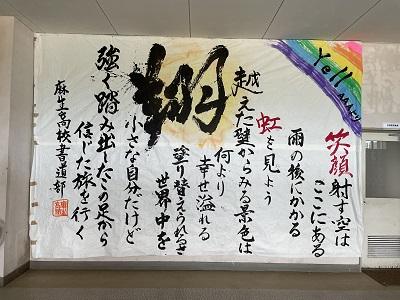 Yell
笑顔射す空は
ここにある
雨の後にかかる
虹を見よう
越えた壁からみる景色は
何より
幸せ溢れる
塗り替えられるさ
世界中を
翔
小さな自分だけど
強く踏み出したこの足から
信じた旅を行く
麻生高校書道部